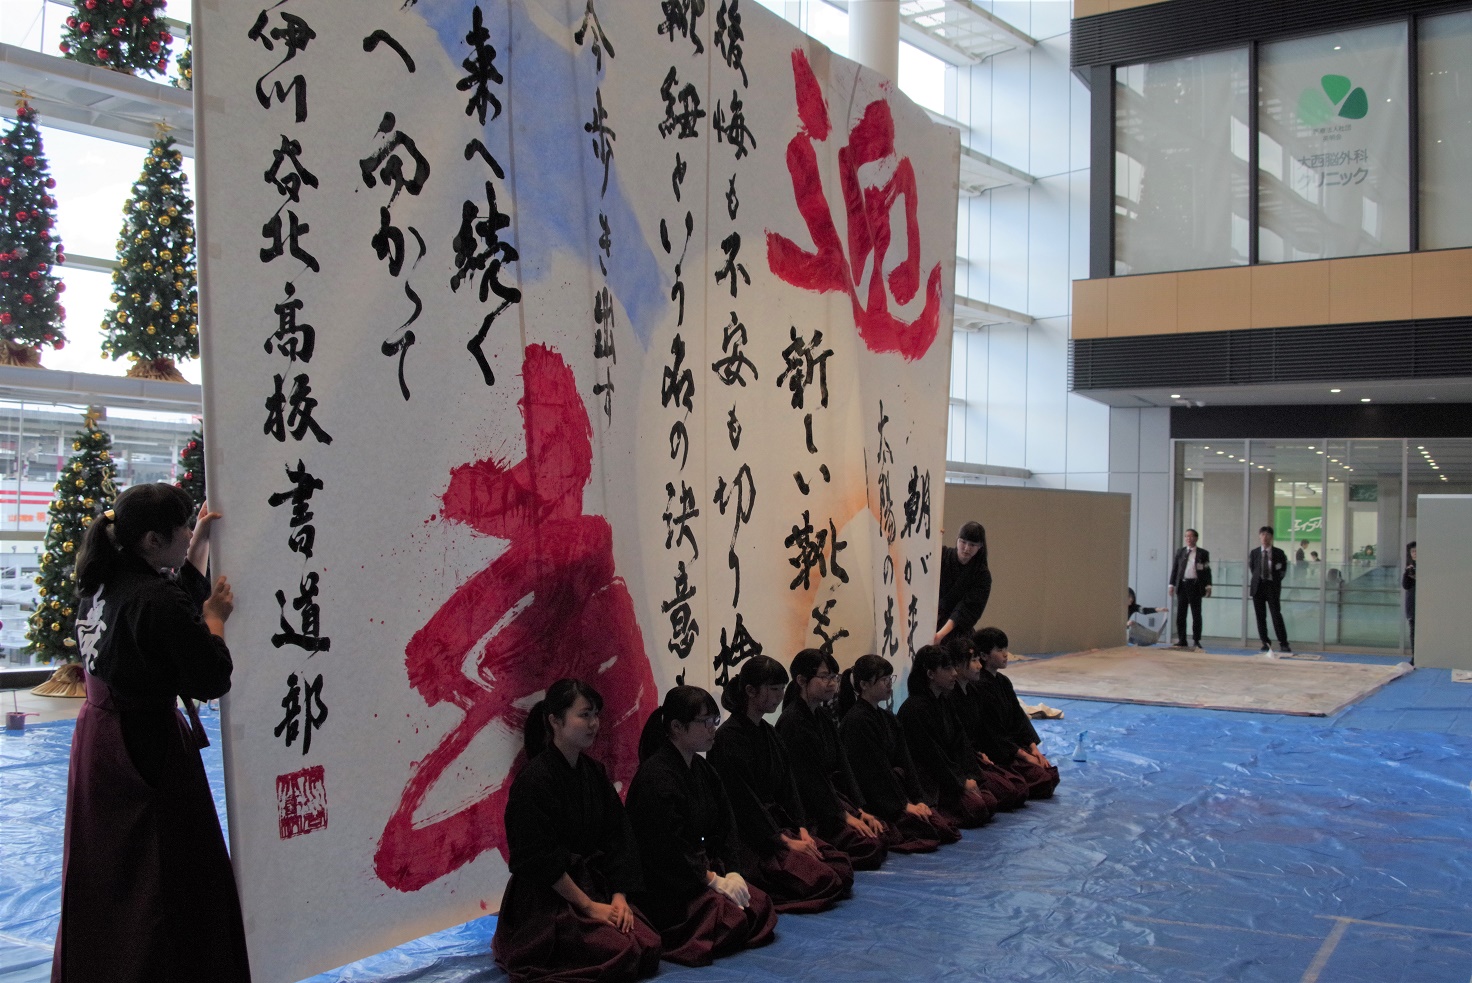 朝が来
太陽の光
新しい靴を
後悔も不安も切り捨
靴紐という名の決意
今歩き出す
来へ続く
へ向かって
伊川谷北高校書道部
大西脳外科
クリニック